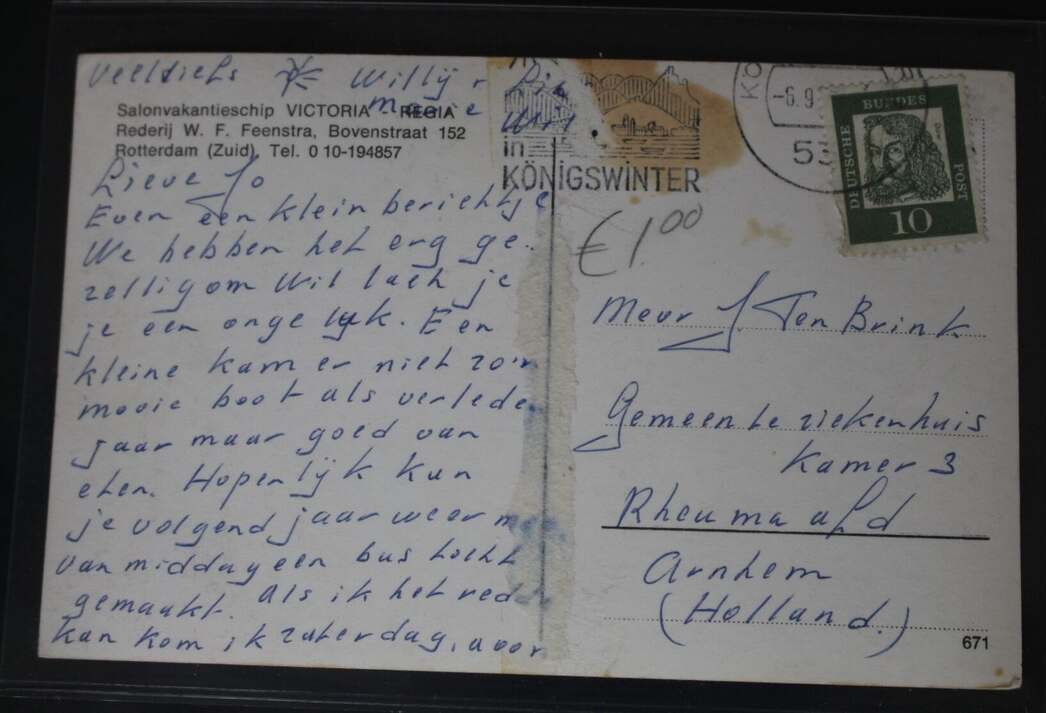 veeltiefs Willy
Marie
Salonvakantieschip VICTORIA - REGIA
Rederij W. F. Feenstra, Bovenstraat 152
Rotterdam (Zuid). Tel. 0 10-194857
Lieve Jo
Even een klein berichtje
We hebben het erg ge-
zellig om Wil lach je
je een ongelyk. Een
kleine kamer niet zo'n
mooie boot als verlede
jaar maar goed van
eten. Hopenlijk kun
je volgend jaar weer m
van middag een bus tocht
gemaakt. Als ik het red
kan kom ik zaterdag, avor
in
KÖNIGSWINTER
-6.9
53
DEUTSCHE BUNDES POST
10
€1.00
Mevr J. Ten Brink
Gemeente ziekenhuis
Kamer 3
Rheuma afd
Arnhem
(Holland.)
671